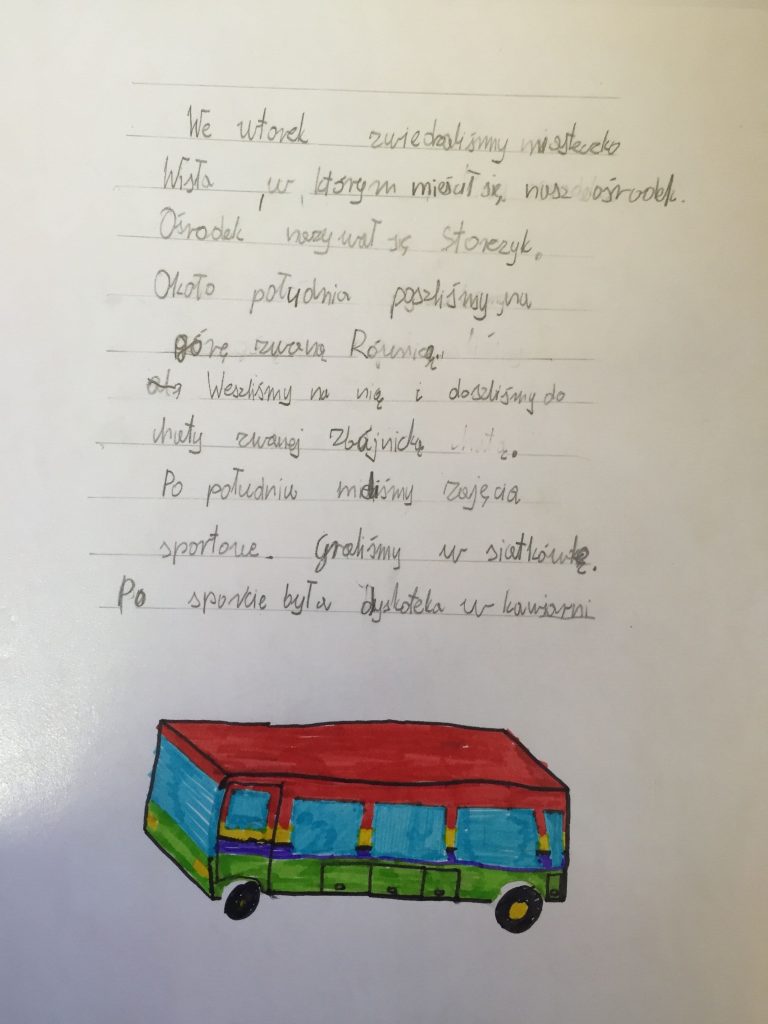 We wtorek zwiedzaliśmy miasteczko
Wisła, w którym mieścił się nasz ośrodek.
Ośrodek nazywał się Storczyk.
Około południa poszliśmy na
górę zwaną Równicą.
Weszliśmy na nią i doszliśmy do
chaty zwanej Zbójnicką chatą.
Po południu mieliśmy zajęcia
sportowe. Graliśmy w siatkówkę.
Po sporcie była dyskoteka w kawiarni